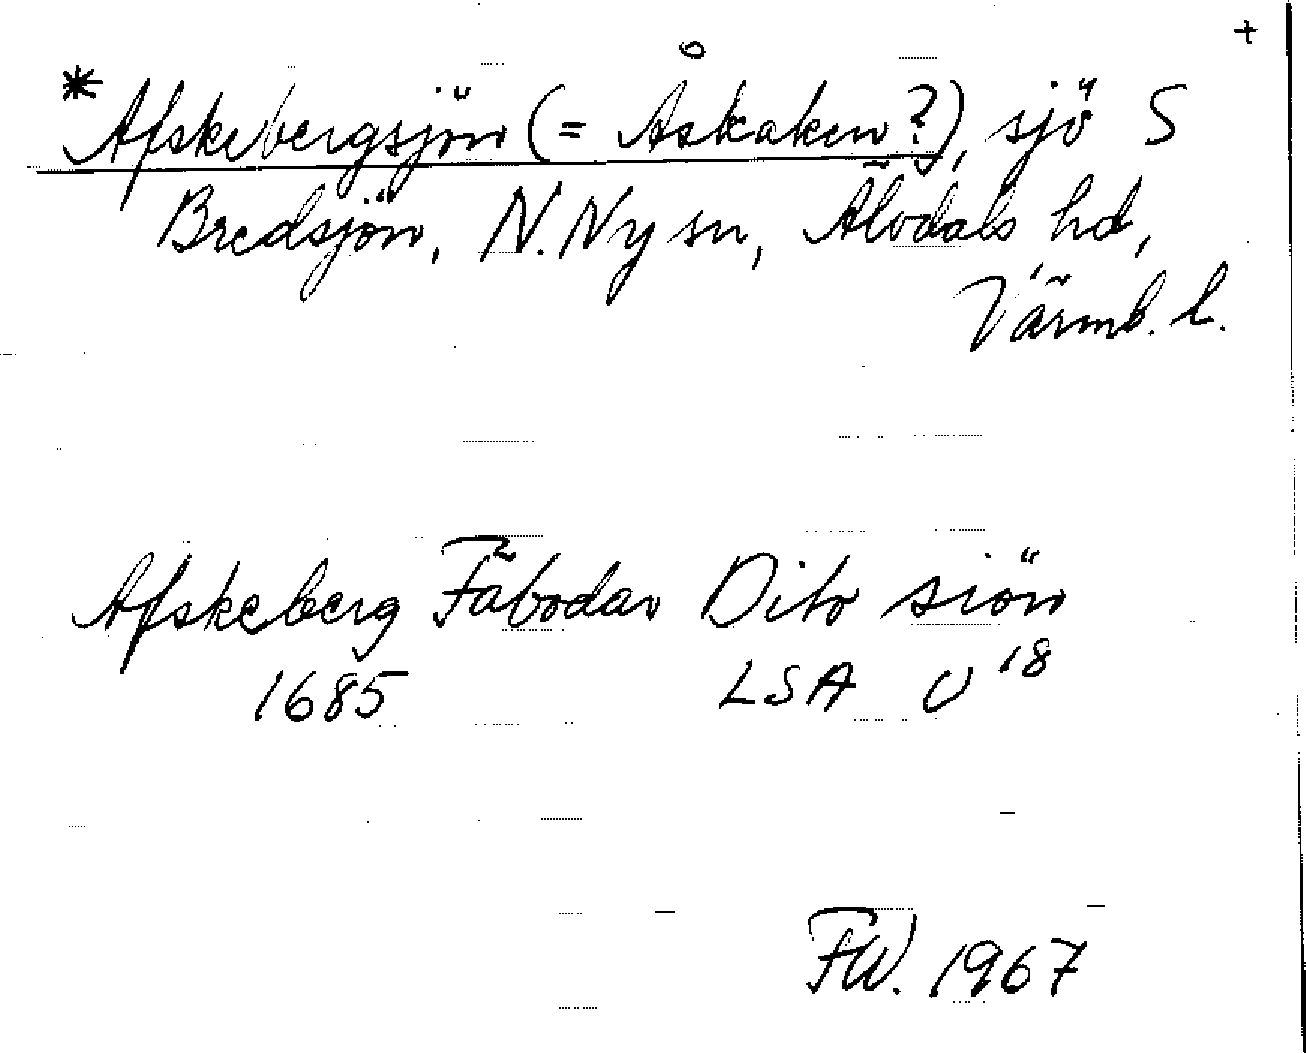 +
*Afskebergsjön (= Åskaken?), sjö S
Bredsjön, N. Ny sn, Älvdals hd,
Värml. l.
Afskeberg Fäbodar Dito siön
1685 LSA U 18
FW. 1967